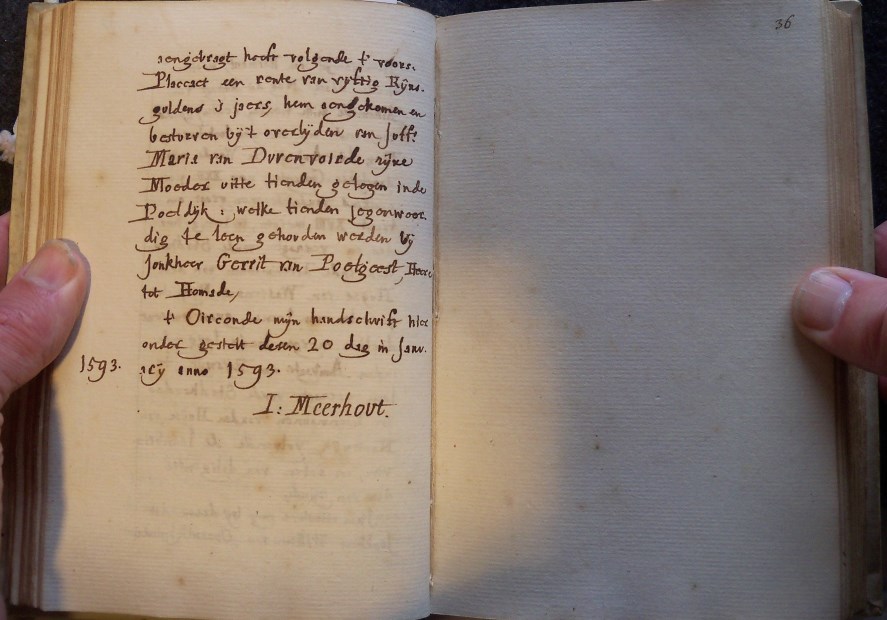 36
aengebragt heeft volgende t voors.
Placcaet een rente van vyftig Rÿns.
guldens s jaers, hem aengekomen en
bestorven bÿ t overlÿden van Joffr
Maria van Duvenvoirde zÿne
Moeder uitte tienden gelegen inde
Poeldÿk: welke tienden jegenwoor.
dig te leen gehouden werden bÿ
Jonkheer Gerrit van Poelgeest, Heere
tot Homade,
t Oirconde mÿn handschrift hier
onder gestelt desen 20 dag in Janu.
1593. arÿ anno 1593.
I: Meerhout.